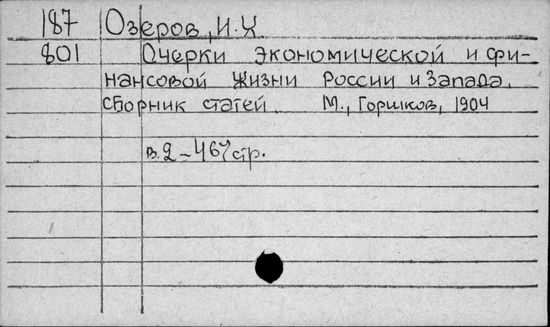 187 Озеров, И.Х
801 Очерки экономической и фи-
нансовой жизни России и Запада.
сборник статей. М., Горшков, 1904
в.2 - 467 стр.